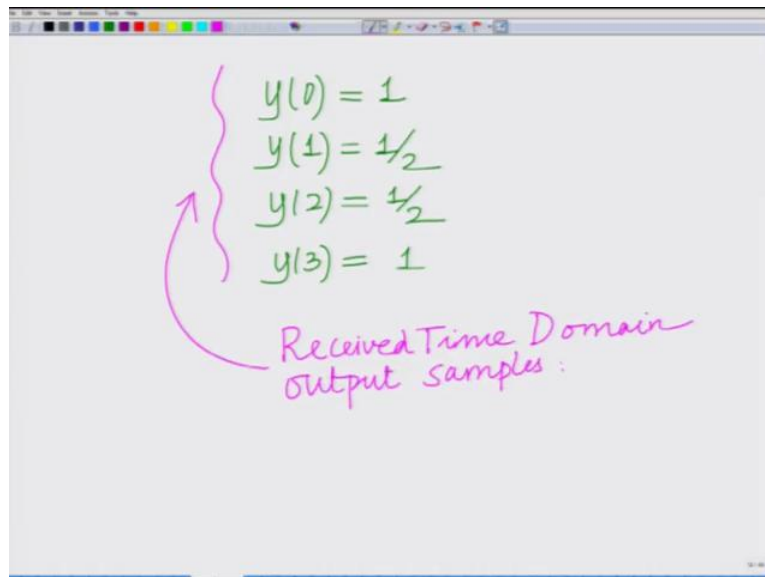 y(0) = 1
y(1) = 1/2
y(2) = 1/2
y(3) = 1
Received Time Domain
output samples: